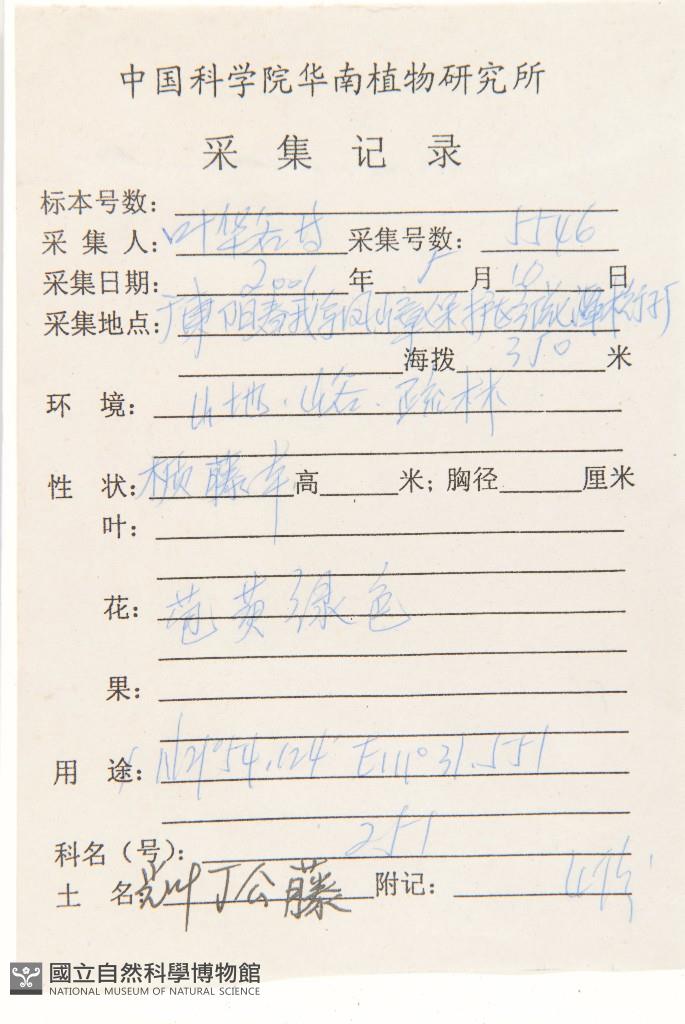 中国科学院华南植物研究所
采集记录
标本号数：
采集人：叶华谷 采集号数：5546
采集日期：2001年5月10日
采集地点：广东阳春 保护区
海拨350米
环境：山地.山谷.疏林
性状：藤本 高 米；胸径 厘米
叶：
花：苞黄绿色
果：
用途：N21°54.124' E111°31.551
科名（号）：251
土名 丁公藤 附记：
國立自然科學博物館
NATIONAL MUSEUM OF NATURAL SCIENCE